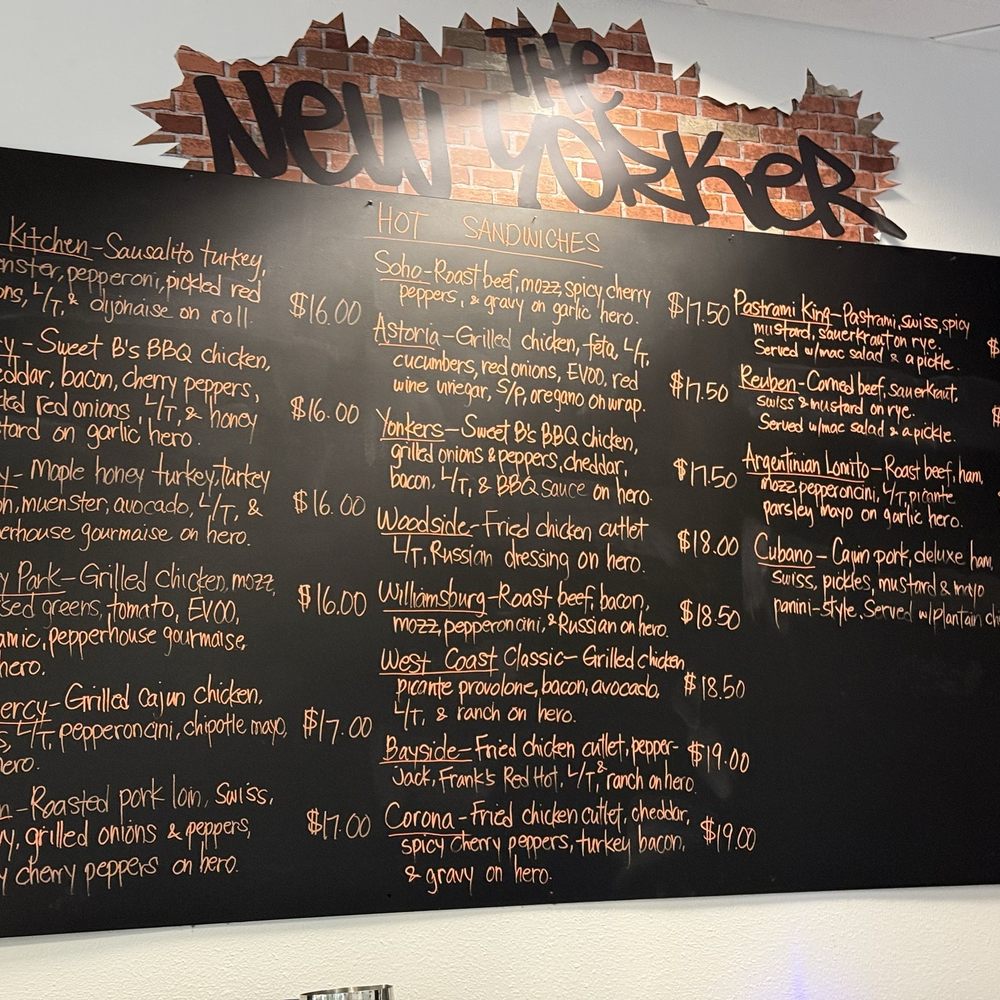 THE
NEW YORKER
Kitchen - Sausalito turkey,
pepperoni, pickled red
L/T, & dijonaise on roll. $16.00
- Sweet B's BBQ chicken,
bacon, cherry peppers,
red onions, L/T, & honey $16.00
on garlic hero.
- Maple honey turkey, turkey
muenster, avocado, L/T, & $16.00
gourmaise on hero.
Park - Grilled chicken, mozz,
greens, tomato, EVOO, $16.00
pepperhouse gourmaise,
hero.
- Grilled Cajun chicken,
L/T, pepperoncini, chipotle mayo, $17.00
- Roasted pork loin, Swiss,
grilled onions & peppers, $17.00
cherry peppers on hero.
HOT SANDWICHES
Soho - Roast beef, mozz, spicy, cherry
peppers, & gravy on garlic hero. $17.50
Astoria - Grilled chicken, feta, L/T,
cucumbers, red onions, EVOO, red
wine vinegar, S/P, oregano on wrap. $17.50
Yonkers - Sweet B's BBQ chicken,
grilled onions & peppers, cheddar,
bacon, L/T, & BBQ sauce on hero. $17.50
Woodside - Fried chicken cutlet
L/T, Russian dressing on hero. $18.00
Williamsburg - Roast beef, bacon,
mozz, pepperoncini, & Russian on hero. $18.50
West Coast Classic - Grilled chicken,
picante provolone, bacon, avocado, $18.50
L/T, & ranch on hero.
Bayside - Fried chicken cutlet, pepper-
Jack, Frank's Red Hot, L/T, & ranch on hero. $19.00
Corona - Fried chicken cutlet, cheddar,
spicy cherry peppers, turkey bacon, $19.00
& gravy on hero.
Pastrami King - Pastrami, swiss, spicy
mustard, sauerkraut on rye.
Served w/mac salad & a pickle. $
Reuben - Corned beef, sauerkraut,
swiss & mustard on rye.
Served w/mac salad & a pickle.
Argentinian Lomito - Roast beef, ham,
mozz, pepperoncini, L/T, picante
parsley mayo on garlic hero.
Cubano - Cajun pork, deluxe ham,
swiss, pickles, mustard & mayo
panini-style. Served w/plantain